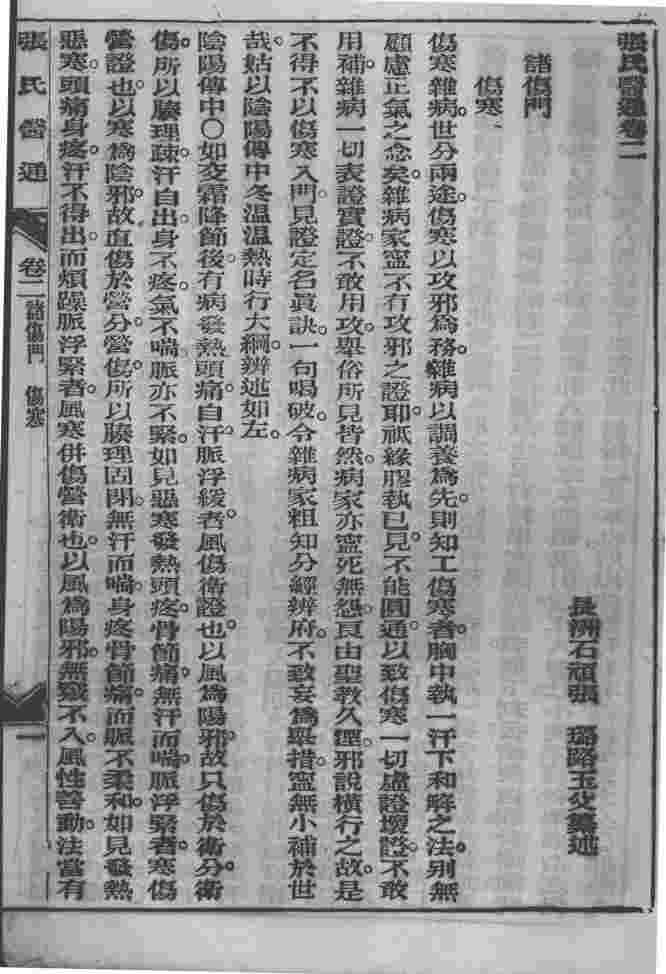 張氏醫通卷二
長洲石頑張　璐路玉父纂述
諸傷門
傷寒
傷寒雜病。世分兩途。傷寒以攻邪為務。雜病以調養為先。則知工傷寒者。胸中執一汗下和解之法。別無
顧慮正氣之念矣。雜病家寧不有攻邪之證耶。祇緣膠執已見。不能圓通。以致傷寒一切虛證壞證。不敢
用補。雜病一切表證實證。不敢用攻。舉俗所見皆然。病家亦寧死無怨。良由聖教久湮。邪說橫行之故。是
不得不以傷寒入門。見證定名真訣。一句喝破。令雜病家粗知分經辨府。不致妄為舉措。寧無小補於世
哉。姑以陰陽傳中冬溫溫熱時行大綱。辨述如左。
陰陽傳中〇如交霜降節後。有病發熱頭痛。自汗。脈浮緩者。風傷衛證也。以風為陽邪。故只傷於衛分。衛
傷。所以腠理疎。汗自出。身不疼。氣不喘。脈亦不緊。如見惡寒發熱頭疼。骨節痛。無汗而喘。脈浮緊者。寒傷
營證也。以寒為陰邪。故直傷於營分。營傷。所以腠理固閉。無汗而喘。身疼骨節痛。而脈不柔和。如見發熱
惡寒。頭痛身疼。汗不得出。而煩躁。脈浮緊者。風寒併傷營衛也。以風為陽邪。無竅不入。風性善動。法當有
張氏醫通　卷二　諸傷門　傷寒　一